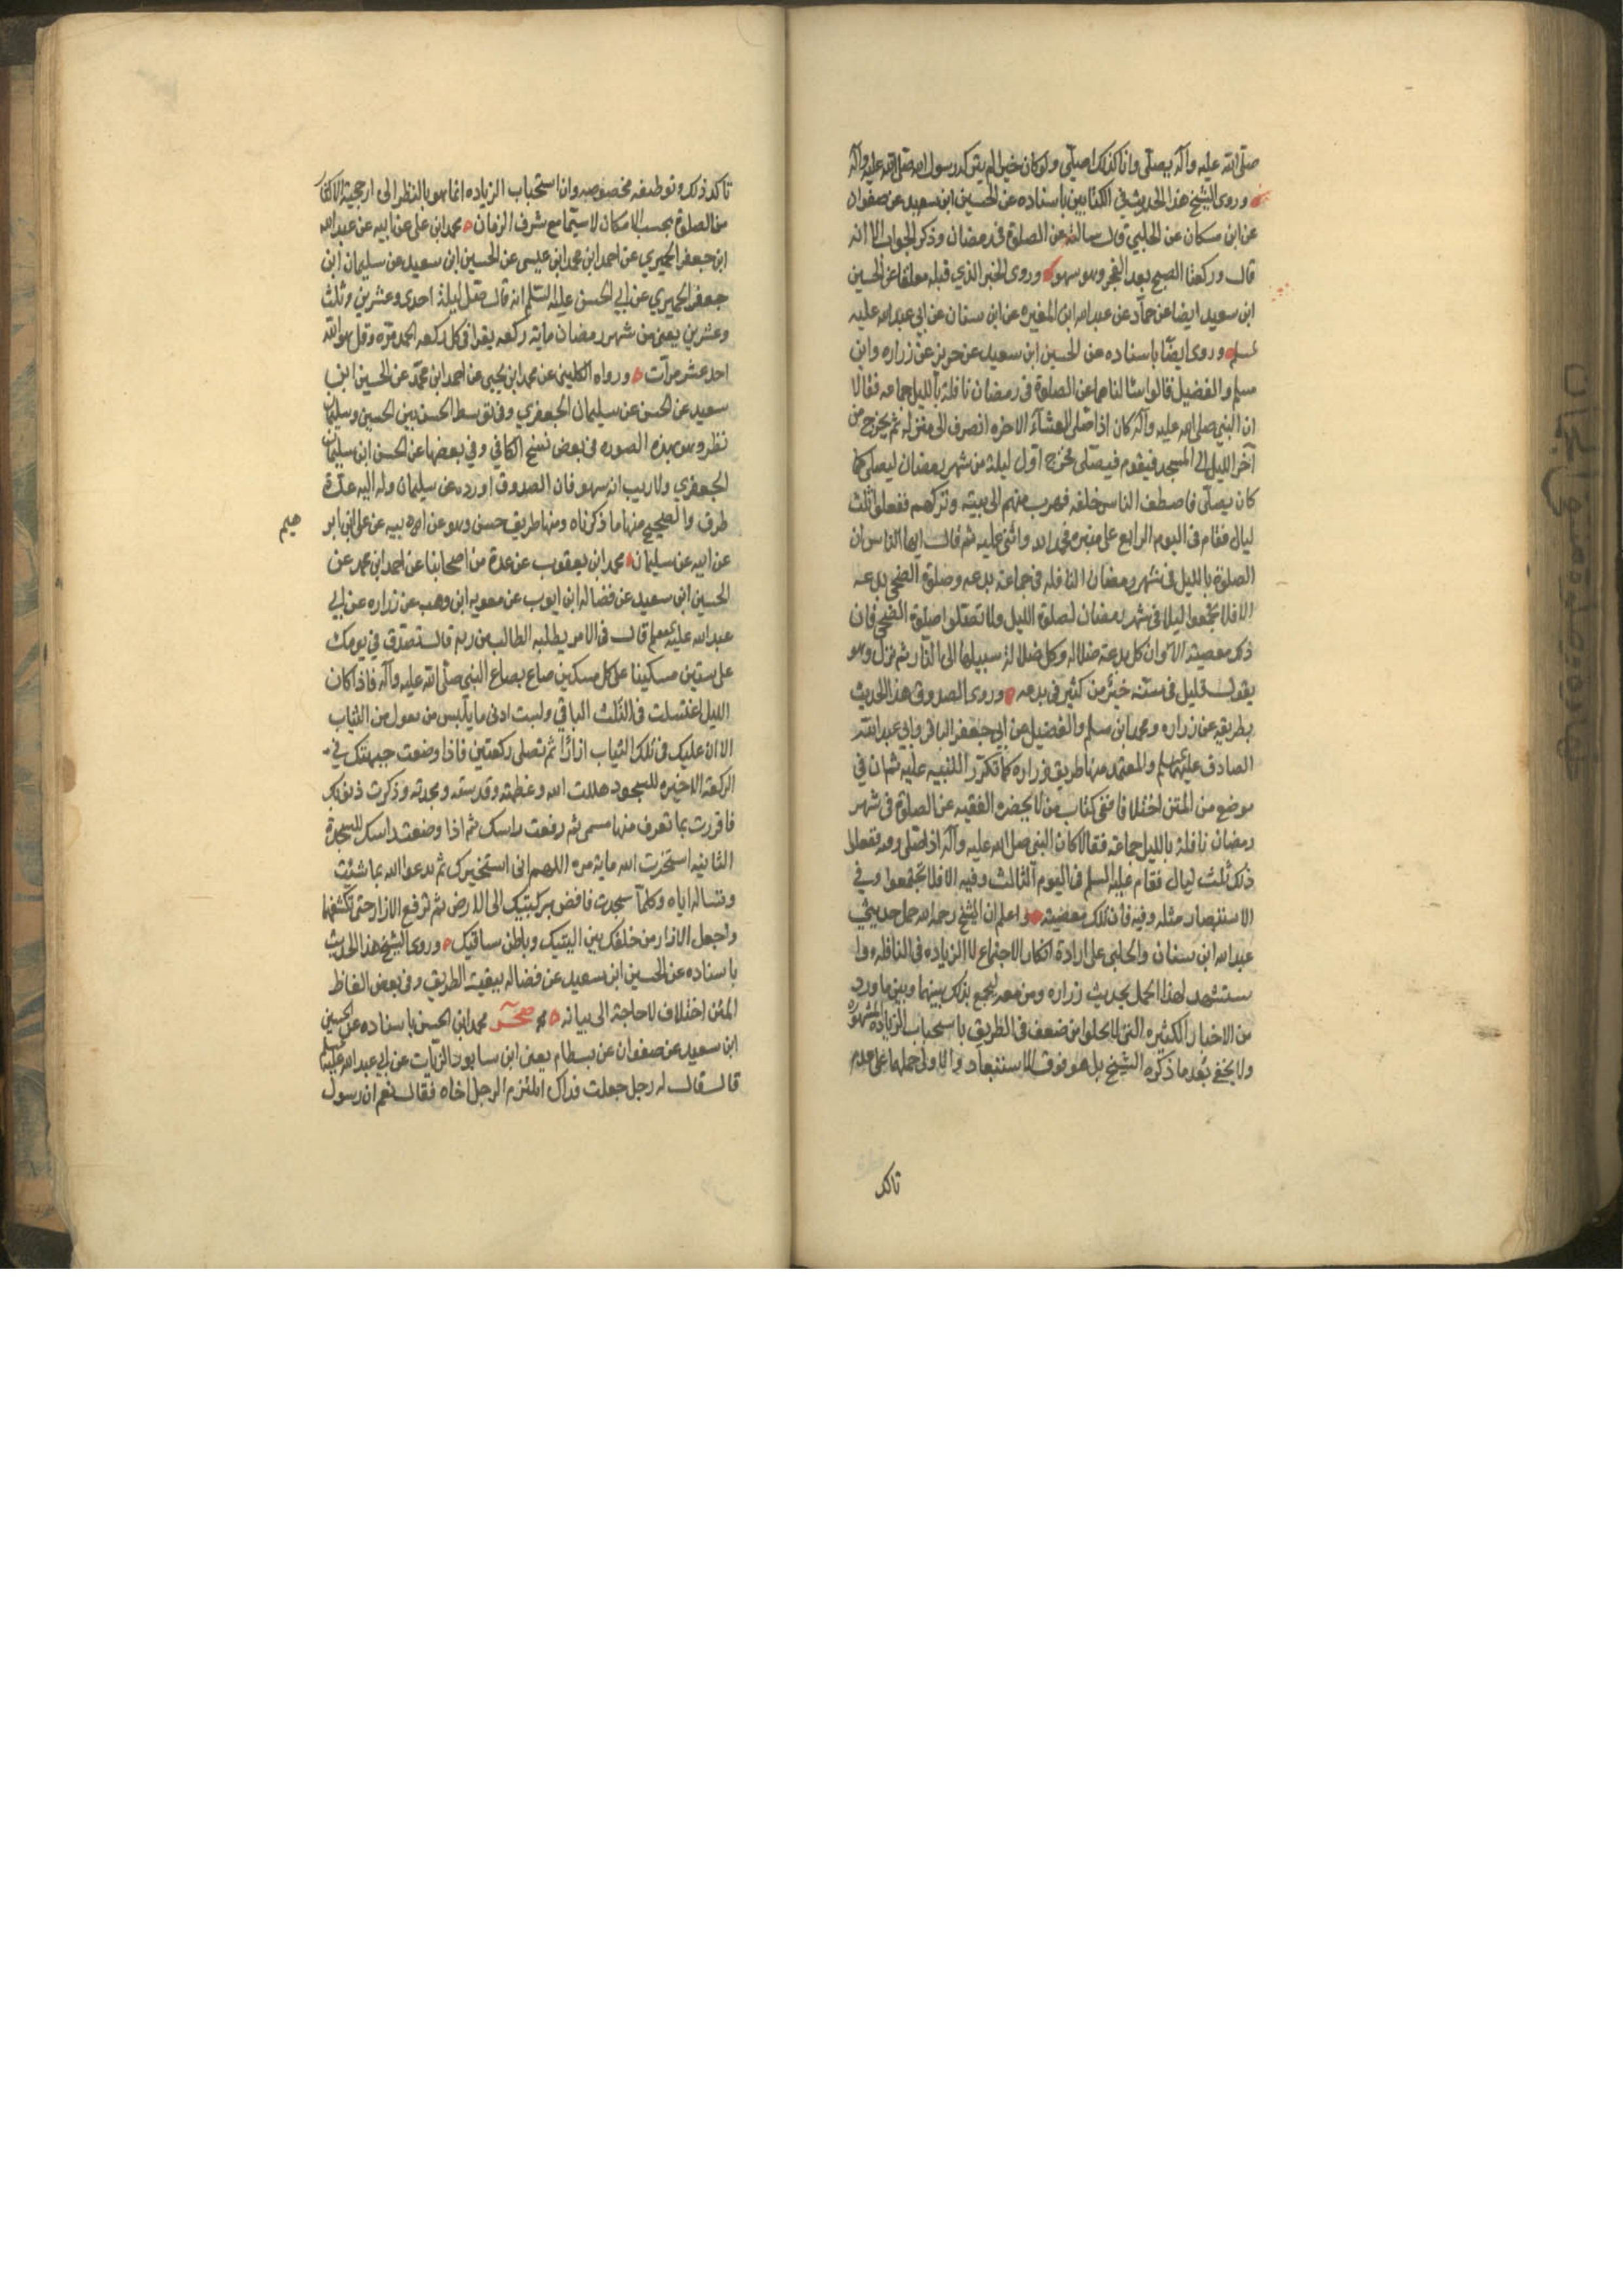 صلى الله عليه وآله يصلي وانا كذلك اصلي ولو كان خيرا لم يتركه رسول الله صلى الله عليه وآله
وروى الشيخ هذا الحديث في الكتابين باسناده عن الحسين ابن سعيد عن صفوان
عن ابن مسكان عن الحلبي قال سالته عن الصلوة في رمضان وذكر الجواب الا انه
قال وركعتا الصبح بعد الفجر وهو سهو وروى الخبر الذي قبله معلقا عن الحسين
ابن سعيد ايضا عن حماد عن عبدالله ابن المغيره عن ابن سنان عن ابي عبدالله عليه
السلم وروى ايضا باسناده عن الحسين ابن سعيد عن حريز عن زراره وابن
مسلم والفضيل قالوا سالناهما عن الصلوة في رمضان نافلة بالليل جماعه فقالا
ان النبي صلى الله عليه وآله كان اذا صلى العشاء الاخره انصرف الى منزله ثم يخرج من
آخر الليل الى المسجد فيقوم فيصلي فخرج اول ليلة من شهر رمضان ليصلي كما
كان يصلي فاصطف الناس خلفه فهرب منهم الى بيته وتركهم ففعلوا ثلث
ليال فقام في اليوم الرابع على منبره فحمد الله واثنى عليه ثم قال ايها الناس ان
الصلوة بالليل في شهر رمضان النافله في جماعة بدعه وصلوة الضحى بدعه
الا فلا تجمعوا ليلا في شهر رمضان لصلوة الليل ولا تصلوا صلوة الضحى فان
ذلك معصية الا وان كل بدعة ضلاله وكل ضلالة سبيلها الى النار ثم نزل وهو
يقول قليل في سنه خير من كثير في بدعه وروى الصدوق هذا الحديث
بطريقه عن زراره ومحمد ابن مسلم والفضيل عن ابي جعفر الباقر وابي عبدالله
الصادق عليهما السلم والمعتمد منها طريق زراره كما تكرر التنبيه عليه ثم ان في
موضع من المتن اختلافا ففي كتاب من لا يحضره الفقيه عن الصلوة في شهر
رمضان نافلة بالليل جماعة فقالا كان النبي صلى الله عليه وآله اذا صلى وفيه ففعلوا
ذلك ثلث ليال فقام عليه السلم في اليوم الثالث وفيه الا فلا تجتمعوا وفي
الاستبصار مثله وفيه فان تلك معصية واعلم ان الشيخ رحمه الله حمل حديثي
عبدالله ابن سنان والحلبي على ارادة انكار الاجتماع لا الزياده في النافله وا
ستشهد لهذا الحمل بحديث زراره ومن معه ليجمع بذلك بينهما وبين ما ورد
من الاخبار الكثيره التي لا يخلوا من ضعف في الطريق باستحباب الزياده المشهوره
ولا يخفى بعد ما ذكره الشيخ بل هو فوق الاستبعاد والاولى حملها على عدم
تاكد
تاكد ذلك وتوظيفه بخصوصه وان استحباب الزياده انما هو بالنظر الى ارجحية الاكثار
من الصلوة بحسب الامكان لا سيما مع شرف الزمان محمد ابن علي عن ابيه عن عبدالله
ابن جعفر الحميري عن احمد ابن محمد ابن عيسى عن الحسين ابن سعيد عن سليمان ابن
جعفر الجعفري عن ابي الحسن عليه السلم انه قال صل ليلة احدى وعشرين وثلث
وعشرين يعني من شهر رمضان ماية ركعه يقرا في كل ركعه الحمد مره وقل هو الله
احد عشر مرات ورواه الكليني عن محمد ابن يحيى عن احمد ابن محمد عن الحسين ابن
سعيد عن الحسن عن سليمان الجعفري وفي توسط الحسن بين الحسين وسليمان
نظر وهو بهذه الصوره في بعض نسخ الكافي وفي بعضها عن الحسن ابن سليمان
الجعفري ولا ريب انه سهو فان الصدوق اورده عن سليمان وله اليه عدة
طرق والصحيح منها ما ذكرناه ومنها طريق حسن وهو عن ابيه عن علي ابن ابر
هيم
عن ابيه عن سليمان محمد ابن يعقوب عن عدة من اصحابنا عن احمد ابن محمد عن
الحسين ابن سعيد عن فضاله ابن ايوب عن معويه ابن وهب عن زراره عن ابي
عبدالله عليه السلم قال في الامر يطلبه الطالب من ربه قال تصدق في يومك
على ستين مسكينا على كل مسكين صاع بصاع النبي صلى الله عليه وآله فاذا كان
الليل اغتسلت في الثلث الباقي ولبست ادنى ما يلبس من تعول من الثياب
الا ان عليك في تلك الثياب ازارا ثم تصلي ركعتين فاذا وضعت جبهتك في
الركعة الاخيره للسجود هللت الله وعظمته وقدسته ومجدته وذكرت ذنوبك
فاقررت بما تعرف منها مسمى ثم رفعت راسك ثم اذا وضعت راسك للسجدة
الثانيه استخرت الله مايه مره اللهم اني استخيرك ثم تدعو الله بما شئت
وتساله اياه وكلما سجدت فافض بركبتيك الى الارض ثم ترفع الازار حتى تكشفها
واجعل الازار من خلفك بين اليتيك وباطن ساقيك وروى الشيخ هذا الحديث
باسناده عن الحسين ابن سعيد عن فضاله ببقية الطريق وفي بعض الفاظ
المتن اختلاف لا حاجة الى بيانه صحر محمد ابن الحسن باسناده عن الحسين
ابن سعيد عن صفوان عن بسطام يعني ابن سابور الزيات عن ابي عبدالله عليه السلم
قال قال له رجل جعلت فداك ايلتزم الرجل اخاه فقال نعم ان رسول